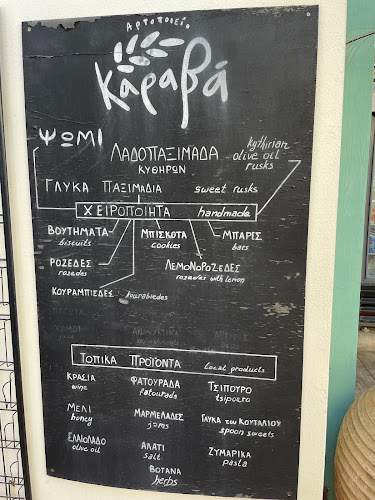 Αρτοποιείο
Καραβά
ΨΩΜΙ
ΛΑΔΟΠΑΞΙΜΑΔΑ
ΚΥΘΗΡΩΝ
kythirian
olive oil
rusks
ΓΛΥΚΑ ΠΑΞΙΜΑΔΙΑ sweet rusks
ΧΕΙΡΟΠΟΙΗΤΑ handmade
ΒΟΥΤΗΜΑΤΑ ΜΠΙΣΚΟΤΑ ΜΠΑΡΕΣ
biscuits cookies bars
ΡΟΖΕΔΕΣ ΛΕΜΟΝΟΡΟΖΕΔΕΣ
rozedes rozedes with lemon
ΚΟΥΡΑΜΠΙΕΔΕΣ kourabiedes
ΤΟΠΙΚΑ ΠΡΟΪΟΝΤΑ local products
ΚΡΑΣΙΑ ΦΑΤΟΥΡΑΔΑ ΤΣΙΠΟΥΡΟ
wine fatourada tsipouro
ΜΕΛΙ ΜΑΡΜΕΛΑΔΕΣ ΓΛΥΚΑ του ΚΟΥΤΑΛΙΟΥ
honey jams spoon sweets
ΕΛΑΙΟΛΑΔΟ ΑΛΑΤΙ ΖΥΜΑΡΙΚΑ
olive oil salt pasta
ΒΟΤΑΝΑ
herbs